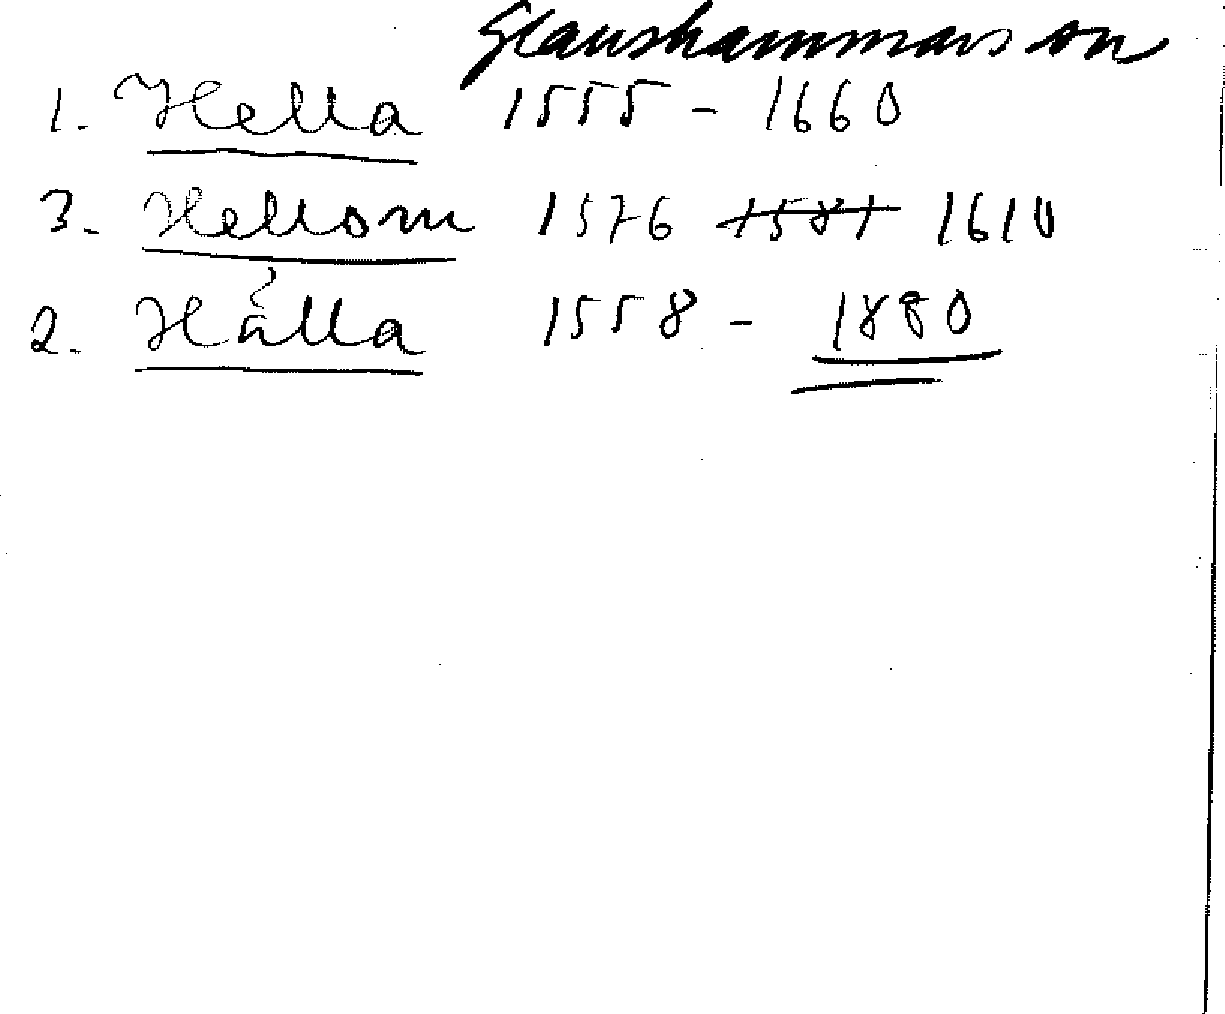 Glanshammars sn
1. Hella 1555 - 1660
3. Hellom 1576 1581 1610
2. Hälla 1558 - 1880